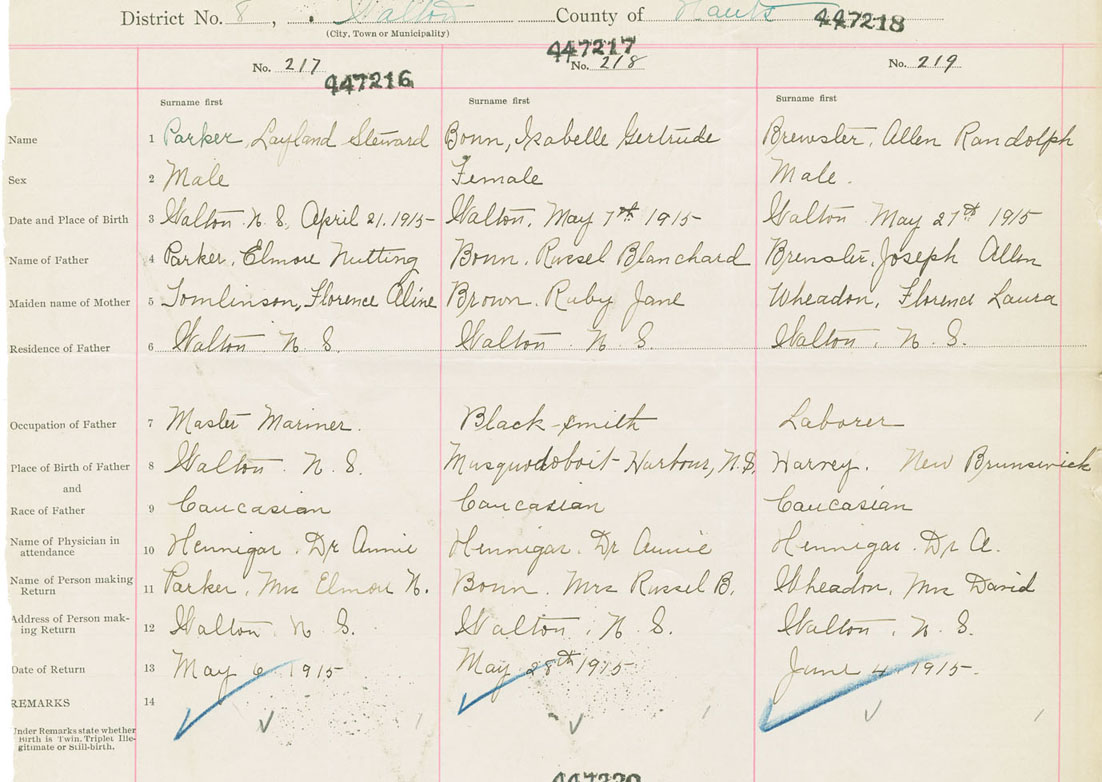 District No. 8, Walton County of Hants 447218
(City, Town or Municipality)
447217
No. 217 No. 218 No. 219
447216
Surname first Surname first Surname first
Name 1 Parker, Layland Steward Bonn, Isabelle Gertrude Brewster, Allen Randolph
Sex 2 Male Female Male.
Date and Place of Birth 3 Walton N.S. April 21. 1915 Walton, May 7th 1915 Walton May 27th 1915
Name of Father 4 Parker, Elmore Nutting Bonn, Russel Blanchard Brewster, Joseph Allen
Maiden name of Mother 5 Tomlinson, Florence Aline Brown, Ruby Jane Wheadon, Florence Laura
Residence of Father 6 Walton. N. S. Walton. N. S. Walton. N. S.
Occupation of Father 7 Master Mariner. Black-smith Laborer
Place of Birth of Father 8 Walton. N. S. Musquodoboit Harbour, N.S. Harvey. New Brunswick
and
Race of Father 9 Caucasian Caucasian Caucasian
Name of Physician in attendance 10 Hennigar. Dr Annie Hennigar. Dr Annie Hennigar. Dr A.
Name of Person making Return 11 Parker, Mrs Elmore N. Bonn. Mrs Russel B. Wheadon, Mrs David
Address of Person making Return 12 Walton. N. S. Walton. N. S. Walton. N. S.
Date of Return 13 May 6 1915 May 28th 1915 June 4 1915.
REMARKS 14
Under Remarks state whether
Birth is Twin, Triplet, Ille-
gitimate or Still-birth.